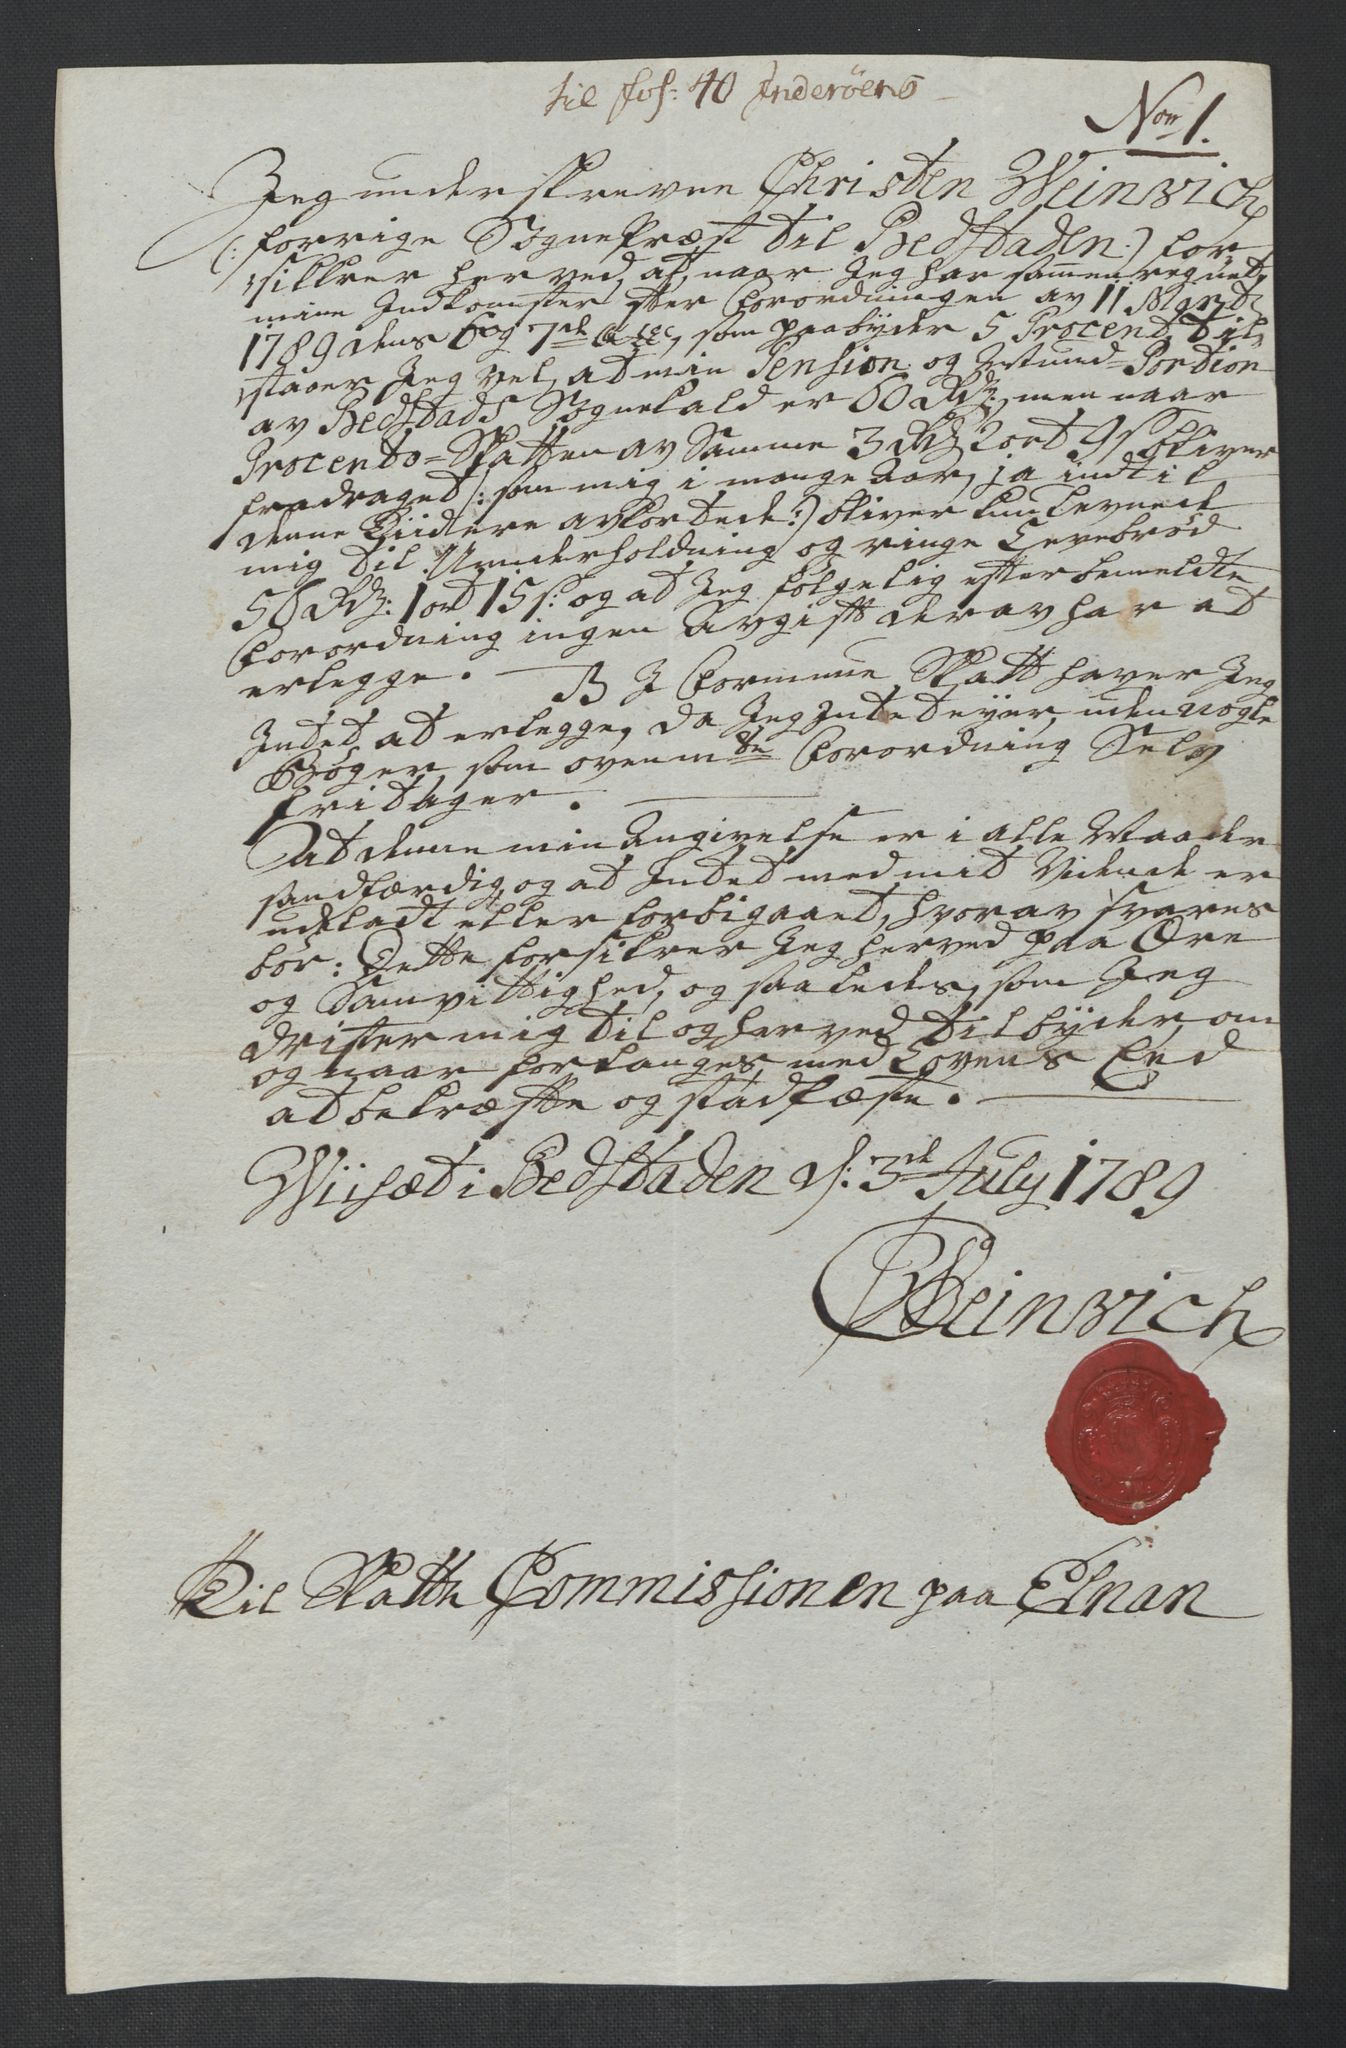 til fol: 40 Inderöens
Nor 1.
Jeg underskreven Christen Weinwich
(: forrige SognePræst til Bedstaden:) for-
sikkrer herved, at, naar Jeg har sammenregnet
mine Indkomster efter Forordningen av 11 Martz
1789 dens 6 og 7de, som paabyder 5 Procent, til-
staaer Jeg vel, at min Pension og Portion
av Bedstads Sognekald er 60 Rdr:, men naar
Procento-Skatten av Samme 3 Rdr 2 ort 9 s bliver
fradraget (: som mig i mange Aar, ja indtil
denne Tiid er avkortede:) bliver kun levnede
mig til Underholdning og ringe Levebrød
56 Rdr: 1 ort 15 s: og at Jeg følgelig efter bemeldte
Forordning ingen Avgift derav har at
erlegge. — I Formue Skatt haver Jeg
Intet at erlegge, da Jeg Intet eyer, uden nogle
Bøger, som ovenmdte Forordning Selv
fritager.
At denne min Angivelse er i alle Maader
sandfærdig, og at Intet med mit Vidende er
udeladt eller forbigaaet, hvorav svares
bør: Dette forsikrer Jeg herved paa Ære
og Samvittighed, og saaledes, som Jeg
drister mig til og herved tilbyder, om
og naar forlanges, med Lovens Eed
at bekræfte og stadfæste.
Wiisæt i Bedstaden d: 3de July 1789
CWeinwich
Til Skatte Commissionen paa Elnan